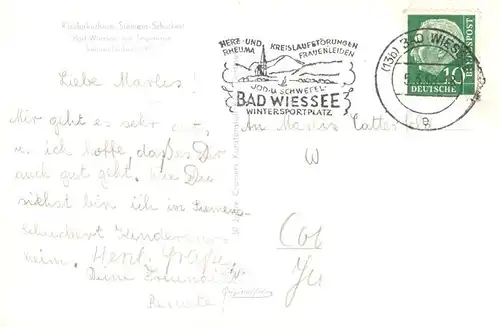 Kinderkurheim Siemens-Schuckert
Bad Wiessee am Tegernsee
HERZ- UND KREISLAUFSTÖRUNGEN
RHEUMA FRAUENLEIDEN
JOD-U. SCHWEFEL-
BAD WIESSEE
WINTERSPORTPLATZ
(13b) BAD WIESSEE
10
DEUTSCHE BUNDESPOST
Liebe Marlis!
Mir geht es sehr gut
u. ich hoffe, daß es Dir
auch gut geht. Wie Du
siehst bin ich im Siemens
Schuckert Kinder
heim. Herzl. Grüße
Deine Freundin
Renate
An Marlis
W